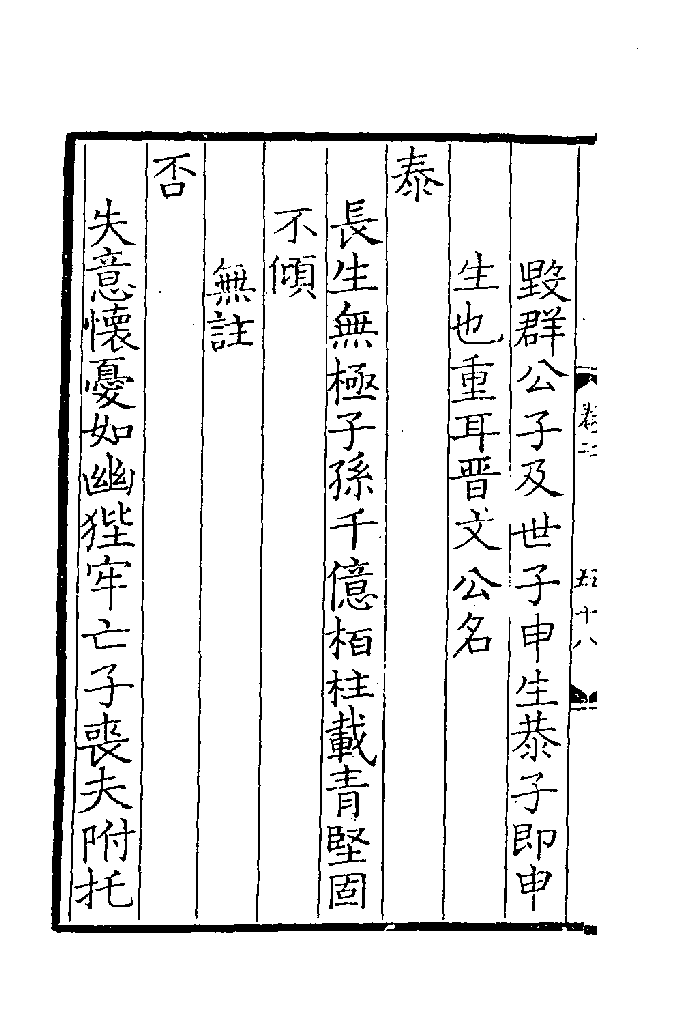 毀群公子及世子申生恭子即申
生也重耳晋文公名
泰
長生無極子孫千億栢柱載青堅固
不傾
無註
否
失意懷憂如幽狴牢亡子喪夫附托